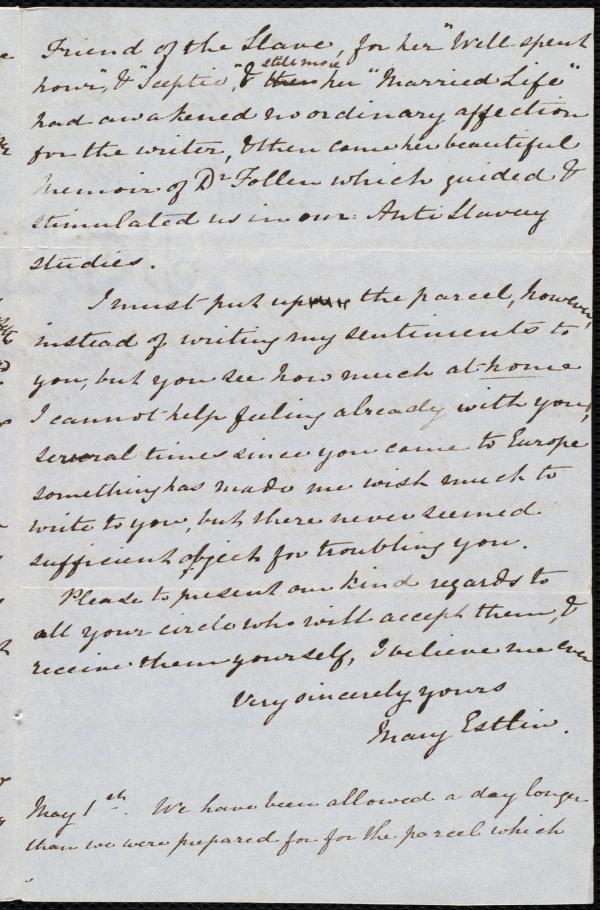 Friend of the Slave, for her "Well spent
hour", & "Sceptic", & still more her "Married Life"
had awakened no ordinary affection
for the writer, & then came her beautiful
Memoir of Dr Follen which guided &
stimulated us in our Anti Slavery
studies.
I must put up the parcel, however,
instead of writing my sentiments to
you, but you see how much at home
I cannot help feeling already with you;
several times since you came to Europe
something has made me wish much to
write to you, but there never seemed
sufficient object for troubling you.
Please to present our kind regards to
all your circle who will accept them, &
receive them yourself, I believe me ever
Very sincerely yours
Mary Estlin.
May 1st. We have been allowed a day longer
than we were prepared for for the parcel which